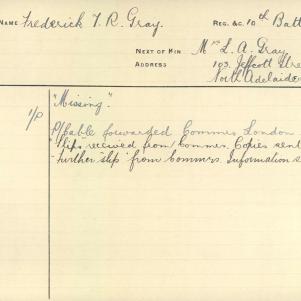 NAME Frederick T. R. Gray. REG. &C. 10th Batt
NEXT OF KIN Mrs L. A. Gray
ADDRESS 103 Jeffcott Stre
North Adelaide
"Missing."
1/P P/Cable forwarded Commrs London
"slips" received from Commrs. Copies sent
Further "slip" from Commrs. Information s